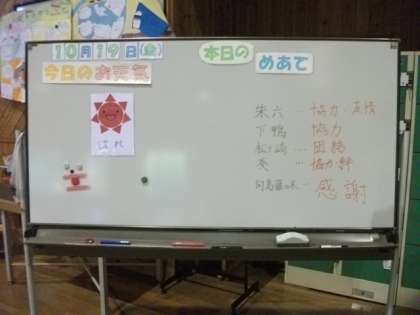 10月19日(金)
今日のお天気
はれ
本日の
めあて
朱六 … 協力・友情
下鴨 協力
松ヶ崎 … 団結
葵 … 協力 絆
… 感謝